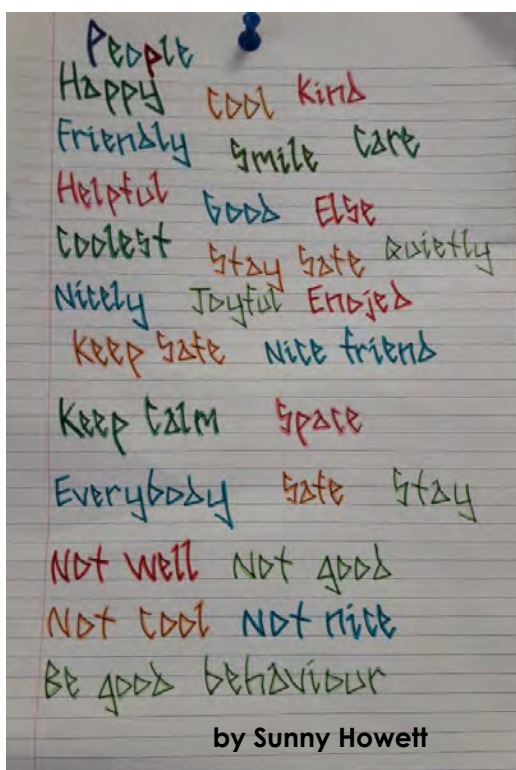 People
Happy Cool Kind
Friendly Smile Care
Helpful Good Else
Coolest Stay Safe Quietly
Nicely Joyful Enojed
Keep Safe Nice friend
Keep Calm Space
Everybody Safe Stay
Not well Not good
Not Cool Not nice
Be good behaviour
by Sunny Howett